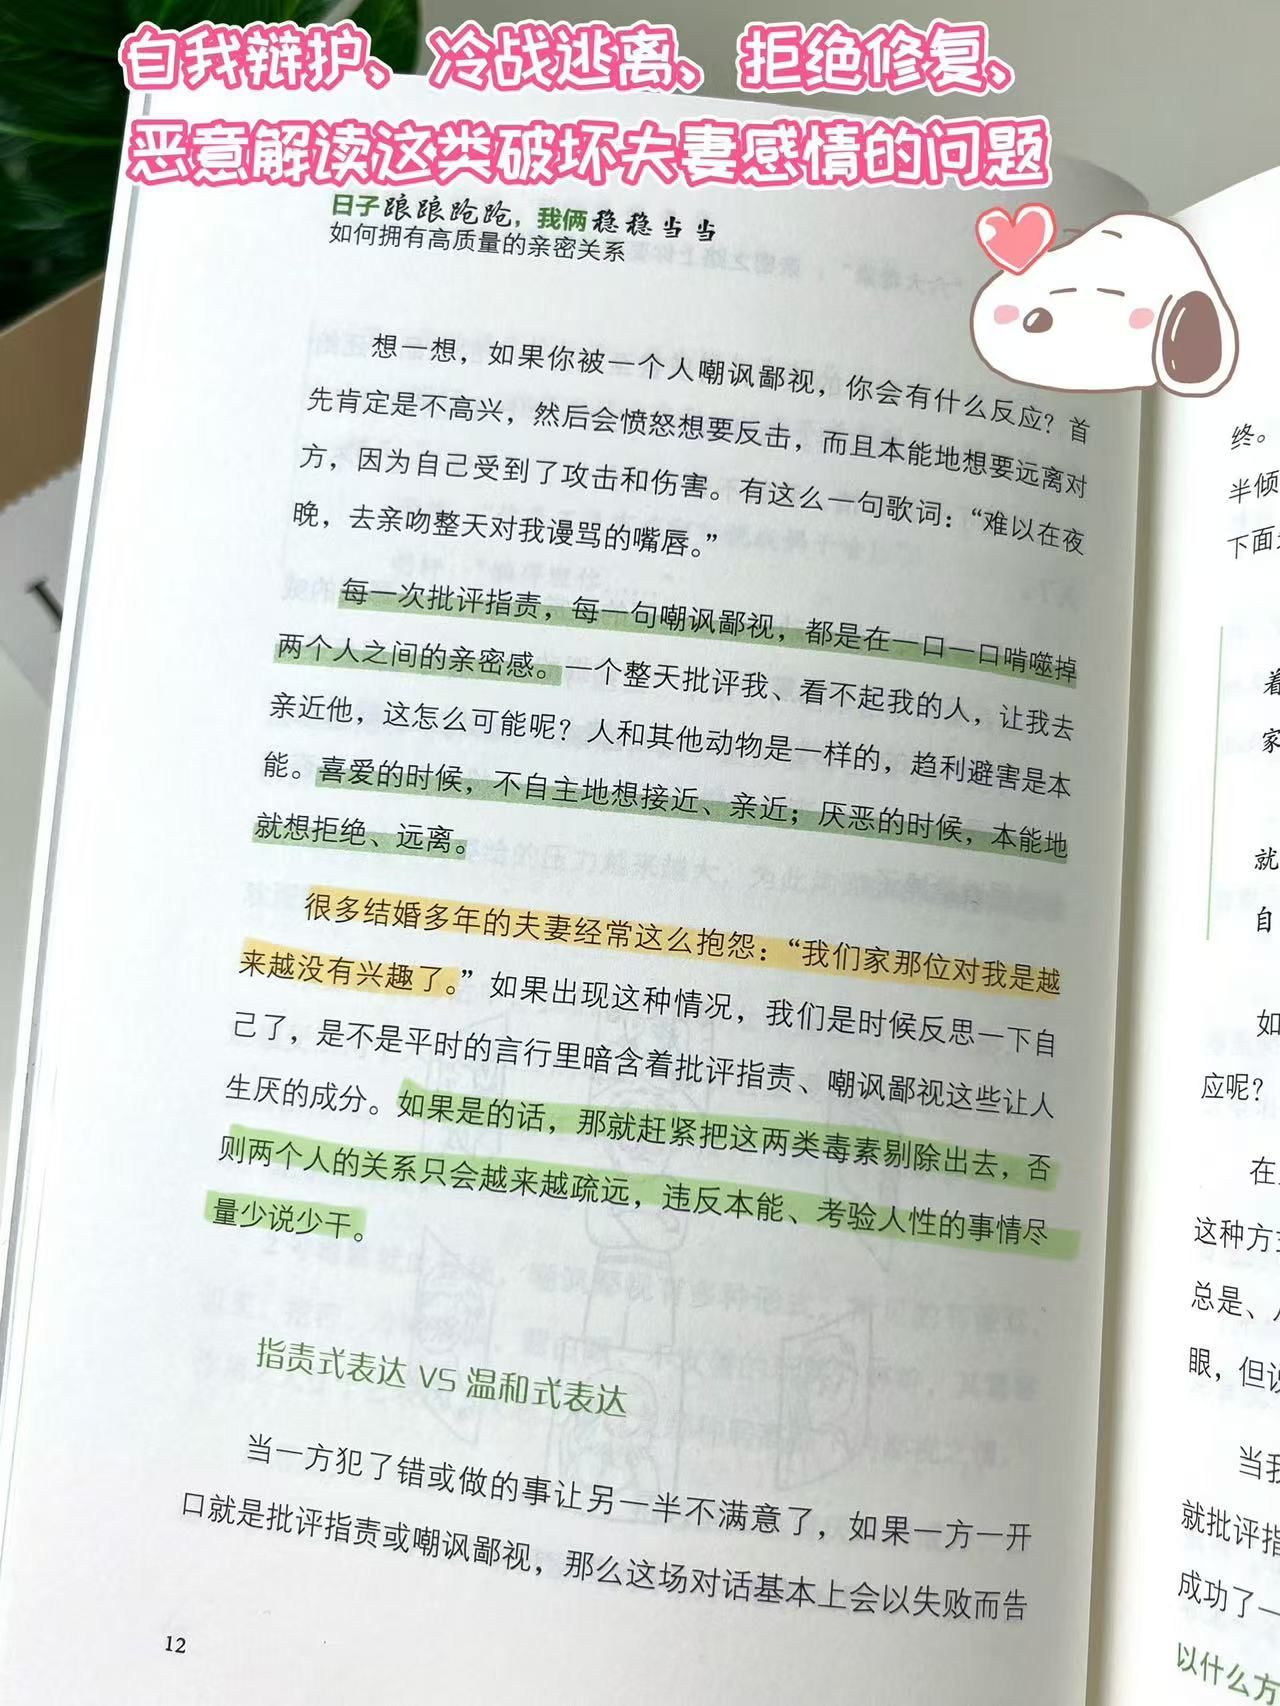 自我辩护、冷战逃离、拒绝修复、
恶意解读这类破坏夫妻感情的问题
日子踉踉跄跄，我俩稳稳当当
如何拥有高质量的亲密关系
想一想，如果你被一个人嘲讽鄙视，你会有什么反应？首
先肯定是不高兴，然后会愤怒想要反击，而且本能地想要远离对
方，因为自己受到了攻击和伤害。有这么一句歌词：“难以在夜
晚，去亲吻整天对我谩骂的嘴唇。”
每一次批评指责，每一句嘲讽鄙视，都是在一口一口啃噬掉
两个人之间的亲密感。一个整天批评我、看不起我的人，让我去
亲近他，这怎么可能呢？人和其他动物是一样的，趋利避害是本
能。喜爱的时候，不自主地想接近、亲近；厌恶的时候，本能地
就想拒绝、远离。
很多结婚多年的夫妻经常这么抱怨：“我们家那位对我是越
来越没有兴趣了。”如果出现这种情况，我们是时候反思一下自
己了，是不是平时的言行里暗含着批评指责、嘲讽鄙视这些让人
生厌的成分。如果是的话，那就赶紧把这两类毒素剔除出去，否
则两个人的关系只会越来越疏远，违反本能、考验人性的事情尽
量少说少干。
指责式表达 VS 温和式表达
当一方犯了错或做的事让另一半不满意了，如果一方一开
口就是批评指责或嘲讽鄙视，那么这场对话基本上会以失败而告
12
终。
半倾
下面
着
家
就
自
如
应呢？
在
这种方
总是、
眼，但说
当我
就批评指
成功了一
以什么方